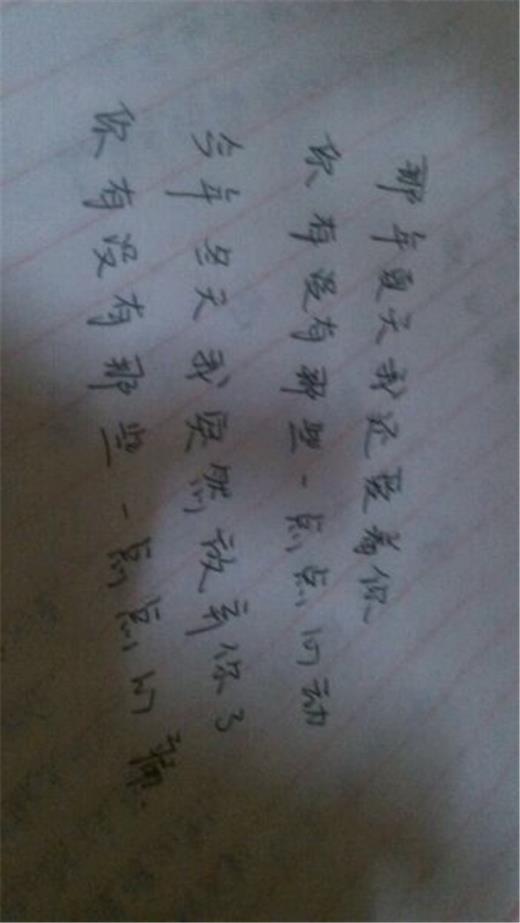 那年夏天我还爱着你
你有没有那些一点点心动
今年冬天我突然放弃你了
你有没有那些一点点心痛